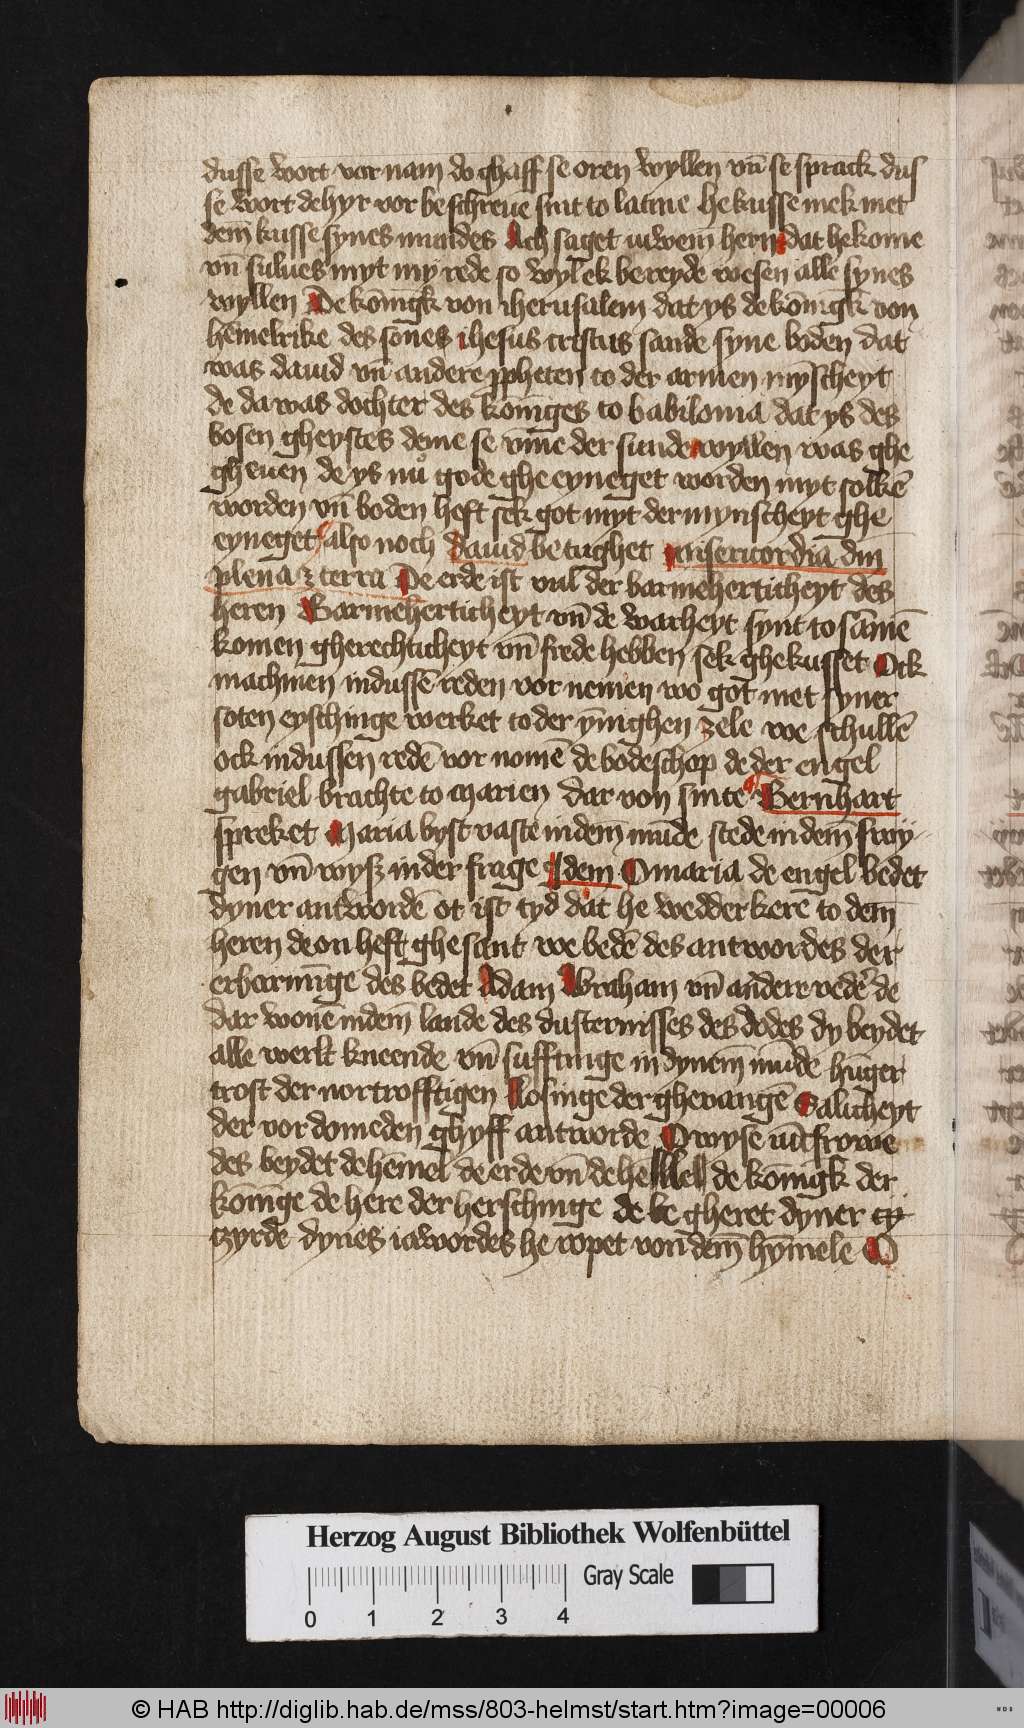 dusse wort vor nam do ghaff se oren wyllen vn̄ se sprack dus
se wort de hyr vor beschreue sint to latine he kusse mek met
dem̄ kusse synes mundes Ach saget iuwem̄ hern dat he kome
vn̄ sulues myt my rede so wyl ek bereyde wesen alle synes
wyllen De kon̄igk von iherusalem dat ys de kōnigk von
hēmelrike des sones ihesus cristus sande syne boden dat
was dauid vn̄ andere ppheten to der armen myscheyt
de da was dochter des kōniges to babilonia dat ys des
bosen gheystes deme se vm̄e der sunde wyllen was ghe
gheuen de ys nu gode ghe eyneget worden myt solkē
worden vn̄ boden heft sek got myt der mynscheyt ghe
eyneget also noch dauid betughet misericordia dni
plena ē terra De erde ist vul der barmeherticheyt des
heren Barmeherticheyt vn̄ de warheyt synt to sām̄ē
komen gherechticheyt vn̄ frede hebben sek ghekusset Ock
machmen in dussē reden vor nemen wo got met syner
soten eyschinge werket to der ȳnighen zele we schullē
ock in dussen redē vor nomē de bodeschop de der engel
gabriel brachte to marien dar von sinte Bernhart
spreket Maria byst vaste in dem̄ mūde stede in dem̄ swy
gen vn̄ wysz in der frage Idem O maria de engel bedet
dyner antwordē ot ist tyd dat he wedder kere to dem
heren de on heft ghesant we bedē des antwordes der
erbarmīge des bedet Adam Abraham vn̄ andere vedēr de
dar wone in dem̄ lande des dusternisses des dodes dy beydet
alle werlt kneende vn̄ sufftinge in dynem̄ mūde hūger
trost der nortrofftigen Losinge der ghevangē Salicheyt
der vordomeden ghyff antworde O wyse iūcfrowe
des beydet de hēmel de erde vn̄ de helle de kōnigk der
kōnīge de here der herschinge de be gheret dyner cy
zyrde dynes iawordes he ropet von dem̄ hȳmele O
Herzog August Bibliothek Wolfenbüttel
0 1 2 3 4
Gray Scale
© HAB http://diglib.hab.de/mss/803-helmst/start.htm?image=00006